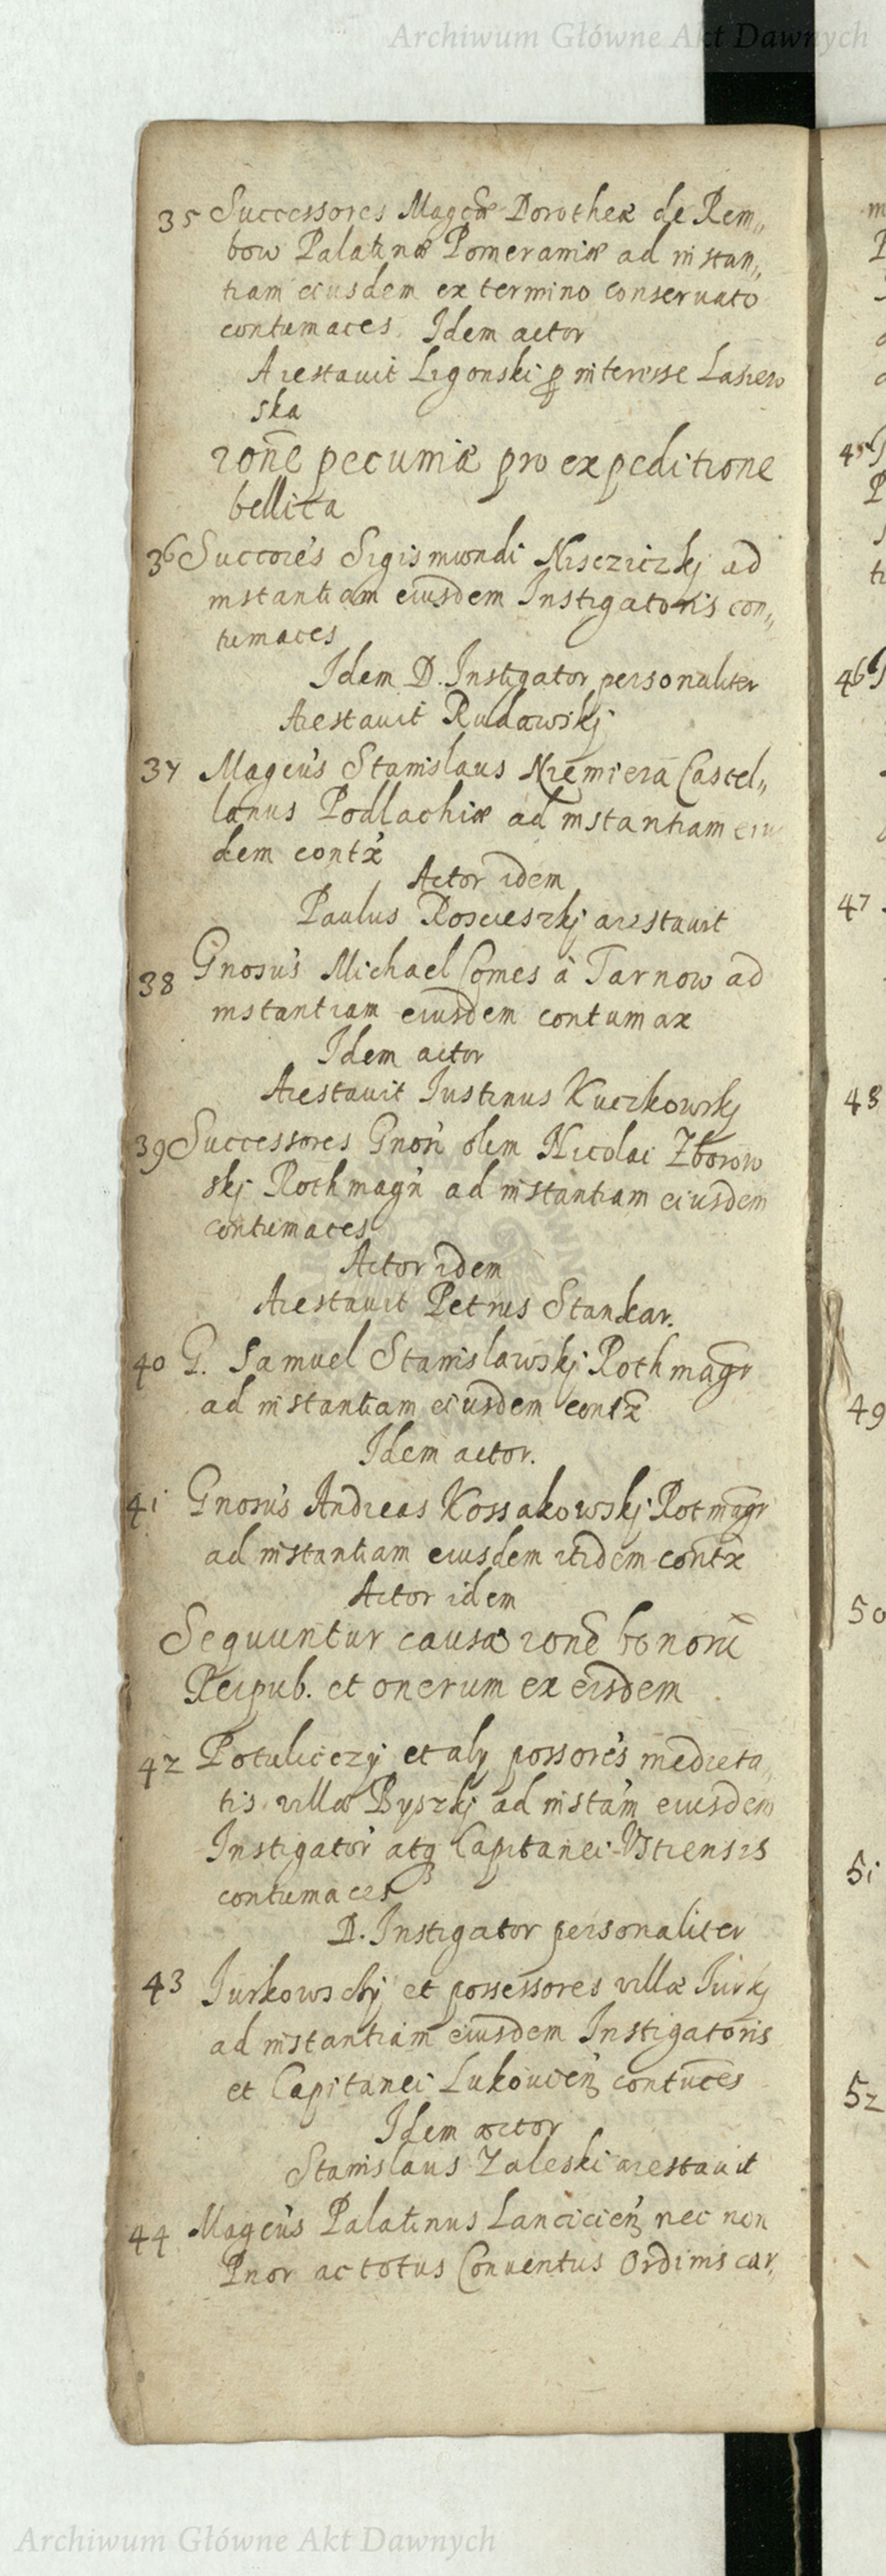 Archiwum Główne Akt Dawnych
35 Successores Magcæ Dorotheæ de Rem„
bow Palatinæ Pomeraniæ ad instan„
tiam eiusdem ex termino conseruato
contumaces. Idem actor
Arestauit Ligonski ꝑ interesse Lasiew
ska
rone pecuniæ pro expeditione
bellica
36 Succores Sigismundi Nisczickj ad
instantiam eiusdem Instigatoris con„
tumaces
Idem D. Instigator personaliter
Arestauit Rudawskj
37 Magcus Stanislaus Niemiera Castel„
lanus Podlachiæ ad instantiam eius
dem contx
Actor idem
Paulus Roscieszkj arestauit
38 Gnosus Michael Comes à Tarnow ad
instantiam eiusdem contumax
Idem actor
Arestauit Iustinus Kuczkowskj
39 Successores Gnosi olim Nicolai Zborow
skj Rothmagri ad instantiam eiusdem
contumaces
Actor idem
Arestauit Petrus Stankar.
40 G. Samuel Stanislawskj Rothmagr
ad instantiam eiusdem contx
Idem actor.
41 Gnosus Andreas Kossakowskj Rotmagr
ad instantiam eiusdem itidem contx
Actor idem
Sequuntur causæ rone bonoru
Reipub. et onerum ex eisdem
42 Potuliczÿ et alÿ possores medieta„
tis villæ Byszkj ad instam eiusdem
Instigator atq Capitanei Ustiensis
contumaces
D. Instigator personaliter
43 Iurkowschÿ et possessores villæ Iurkj
ad instantiam eiusdem Instigatoris
et Capitanei Lukouien contuces
Idem actor
Stanislaus Zaleski arestauit
44 Magcus Palatinus Lancicien nec non
Prior ac totus Conuentus Ordinis car„
45
46
47
48
49
50
51
52
Archiwum Główne Akt Dawnych